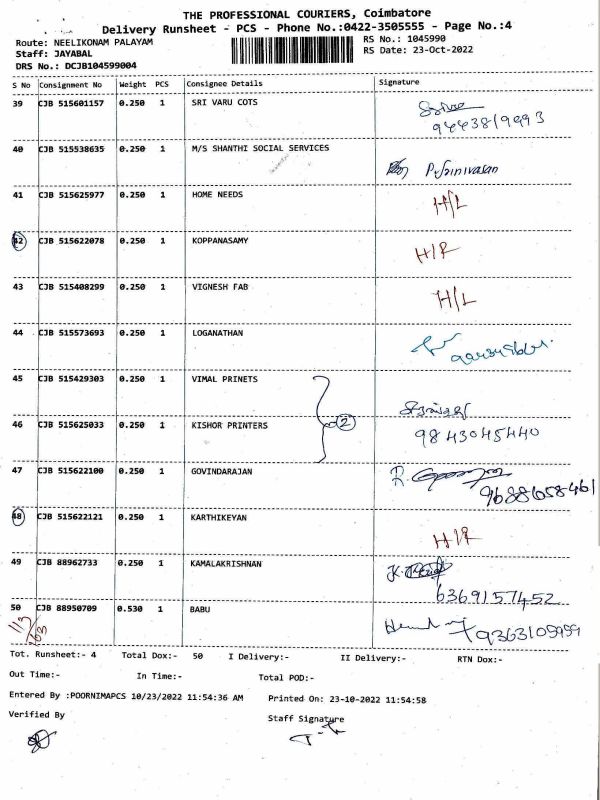 THE PROFESSIONAL COURIERS, Coimbatore
Delivery Runsheet - PCS - Phone No.:0422-3505555 - Page No.:4
Route: NEELIKONAM PALAYAM RS No.: 1045990
Staff: JAYABAL RS Date: 23-Oct-2022
DRS No.: DCJB104599004
S No Consignment No Weight PCS Consignee Details Signature
39 CJB 515601157 0.250 1 SRI VARU COTS
40 CJB 515538635 0.250 1 M/S SHANTHI SOCIAL SERVICES
P. Srinivasan
41 CJB 515625977 0.250 1 HOME NEEDS H/L
42 CJB 515622078 0.250 1 KOPPANASAMY H/R
43 CJB 515408299 0.250 1 VIGNESH FAB H/L
44 CJB 515573693 0.250 1 LOGANATHAN
45 CJB 515429303 0.250 1 VIMAL PRINETS
46 CJB 515625033 0.250 1 KISHOR PRINTERS 2 9843045440
47 CJB 515622100 0.250 1 GOVINDARAJAN
9688658461
48 CJB 515622121 0.250 1 KARTHIKEYAN H/R
49 CJB 88962733 0.250 1 KAMALAKRISHNAN
6369157452
50 CJB 88950709 0.530 1 BABU
9363105999
113/163
Tot. Runsheet:- 4 Total Dox:- 50 I Delivery:- II Delivery:- RTN Dox:-
Out Time:- In Time:- Total POD:-
Entered By :POORNIMAPCS 10/23/2022 11:54:36 AM Printed On: 23-10-2022 11:54:58
Verified By Staff Signature